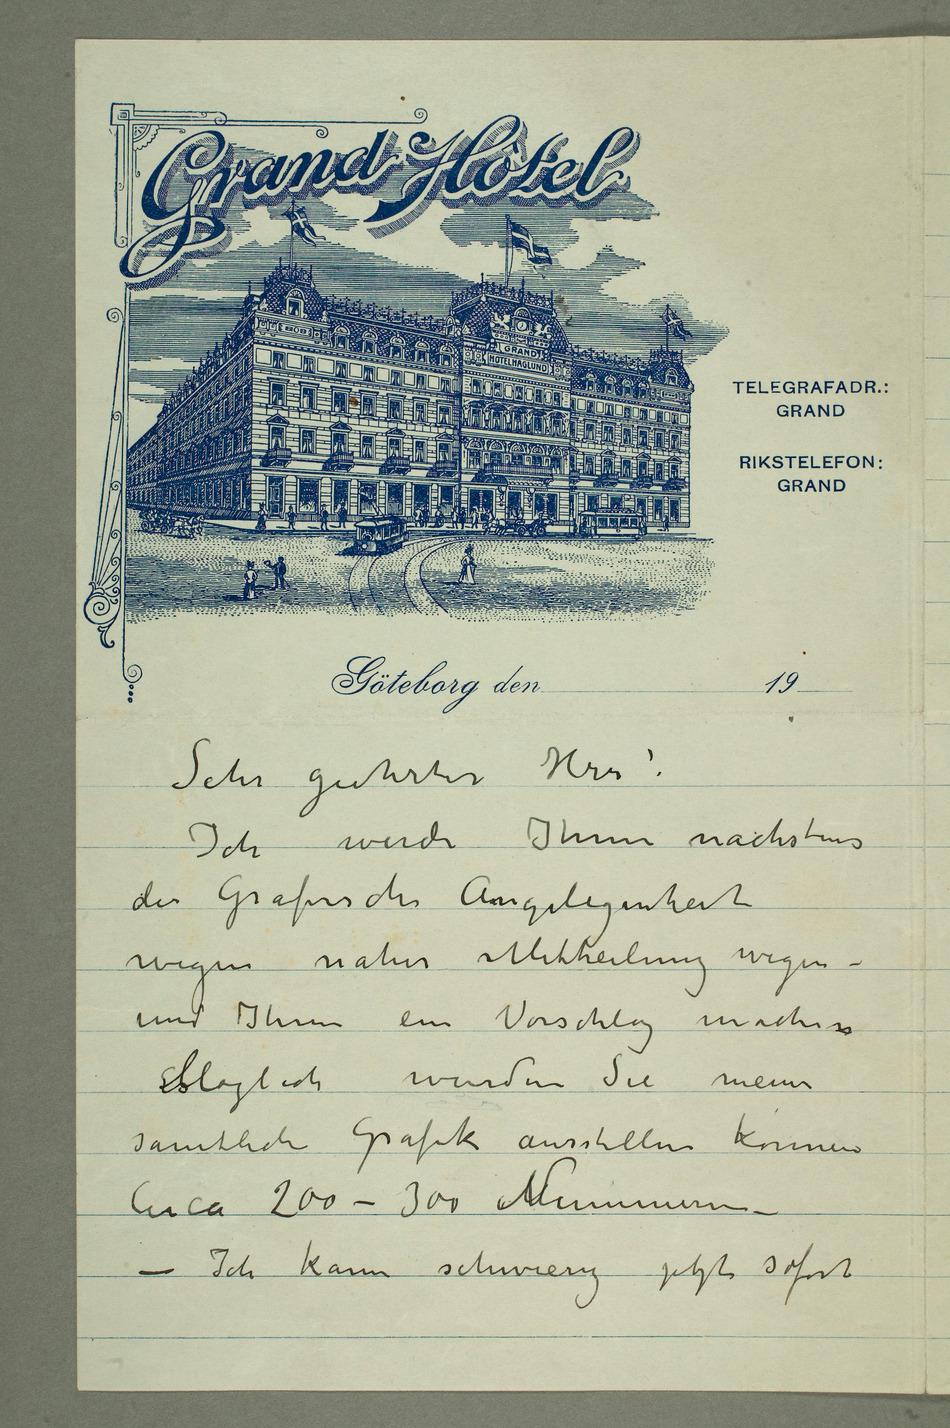 Grand Hôtel
GRAND
HOTEL HAGLUND
TELEGRAFADR.:
GRAND
RIKSTELEFON:
GRAND
Göteborg den 19
Sehr geehrter Herr!
Ich werde Ihnen nächstens
der Grafische Angelegenheit
wegen näher Mittheilung wegen –
und Ihnen ein Vorschlag machen
würden Sie meine
samtliche Grafik ausstellen können
Circa 200 – 300 Nummern –
– Ich kann schwierig jetzt sofort